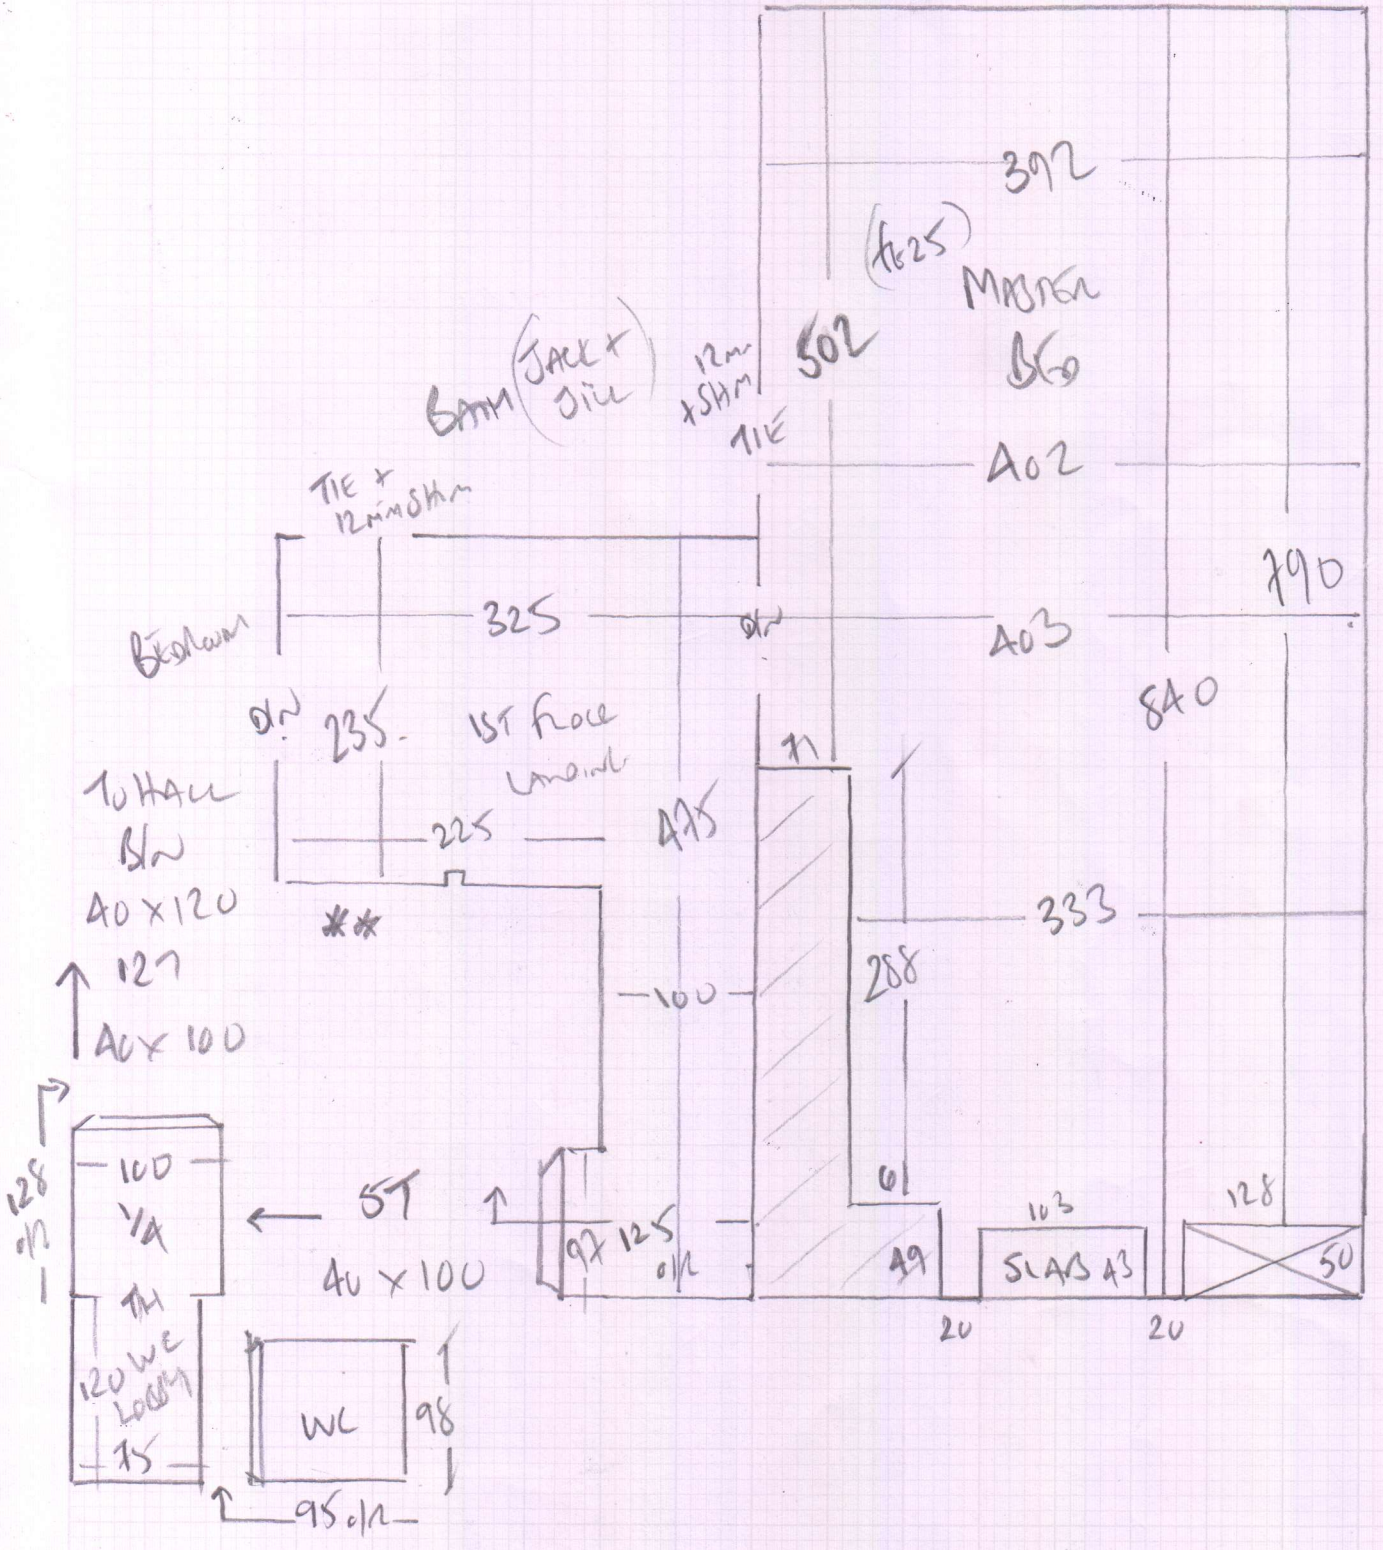 392
(FE25)
MASTER
BED
502
BATH (JACK +
JILL)
12mm
+ SHM
TIE
402
TIE +
12mm SHM
790
325
D/N
403
BEDROOM
840
D/N
235
1ST FLOOR
LANDING
71
TO HALL
B/N
225
475
40 X 120
**
333
127
288
100
40 X 100
128
O/R
100
1/4
5T
40 X 100
97
125
O/R
61
49
103
SLAB 43
128
50
20
20
TH
WC
LOBBY
120
75
WC
98
95 O/R